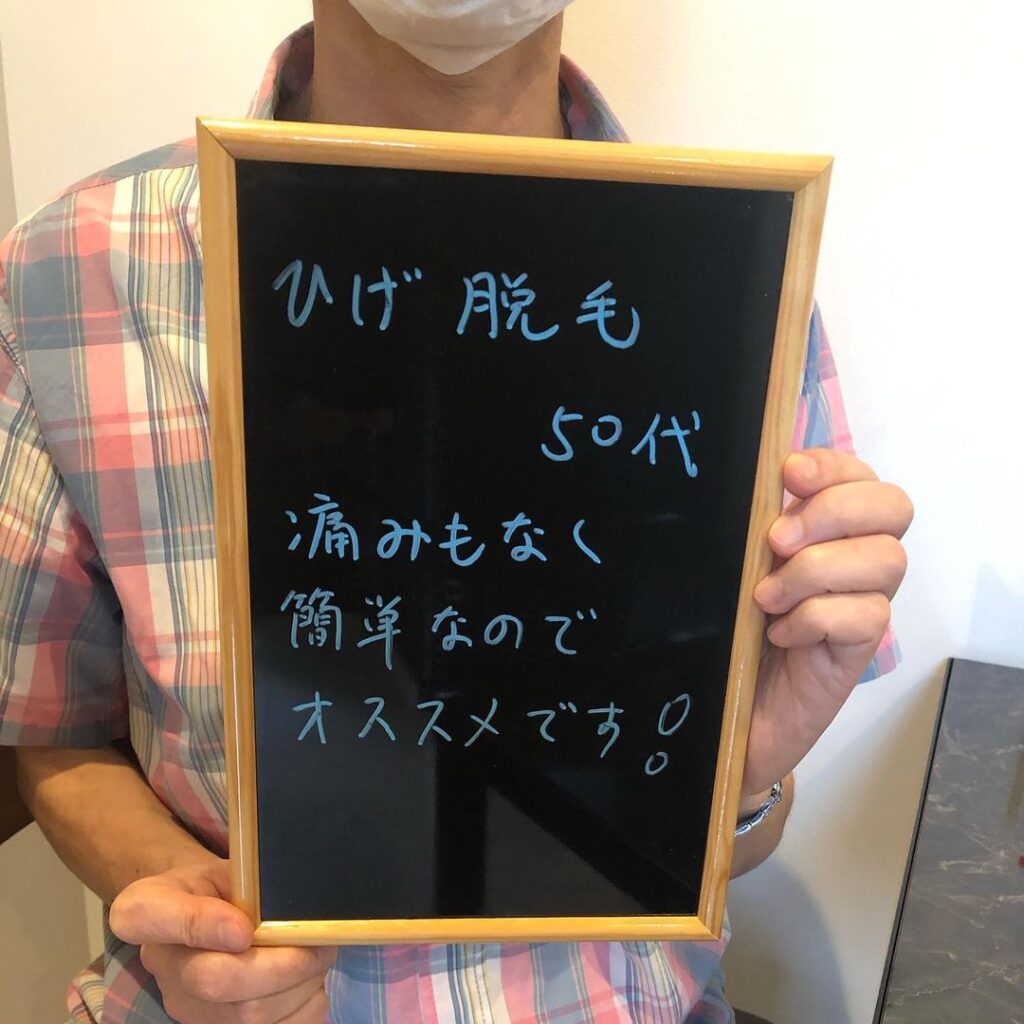 ひげ 脱毛
50代
痛みもなく
簡単なので
オススメです!